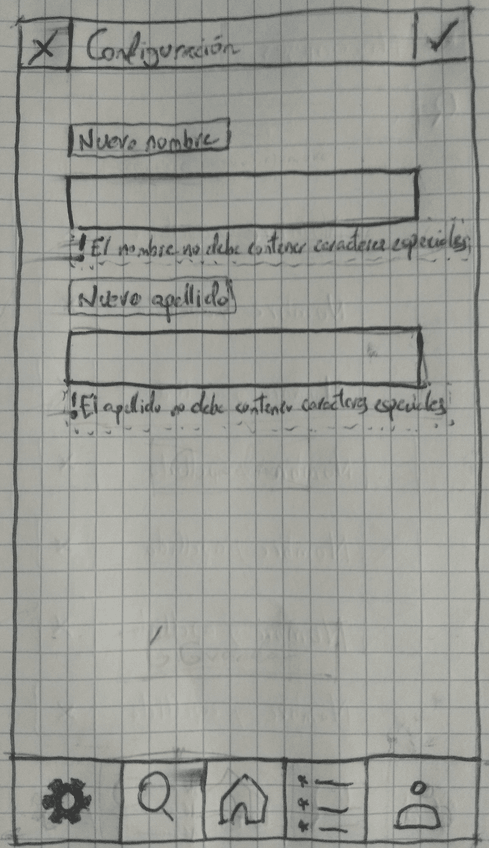 X Configuración ✓
Nuevo nombre
! El nombre no debe contener caracteres especiales
Nuevo apellido
! El apellido no debe contener caracteres especiales